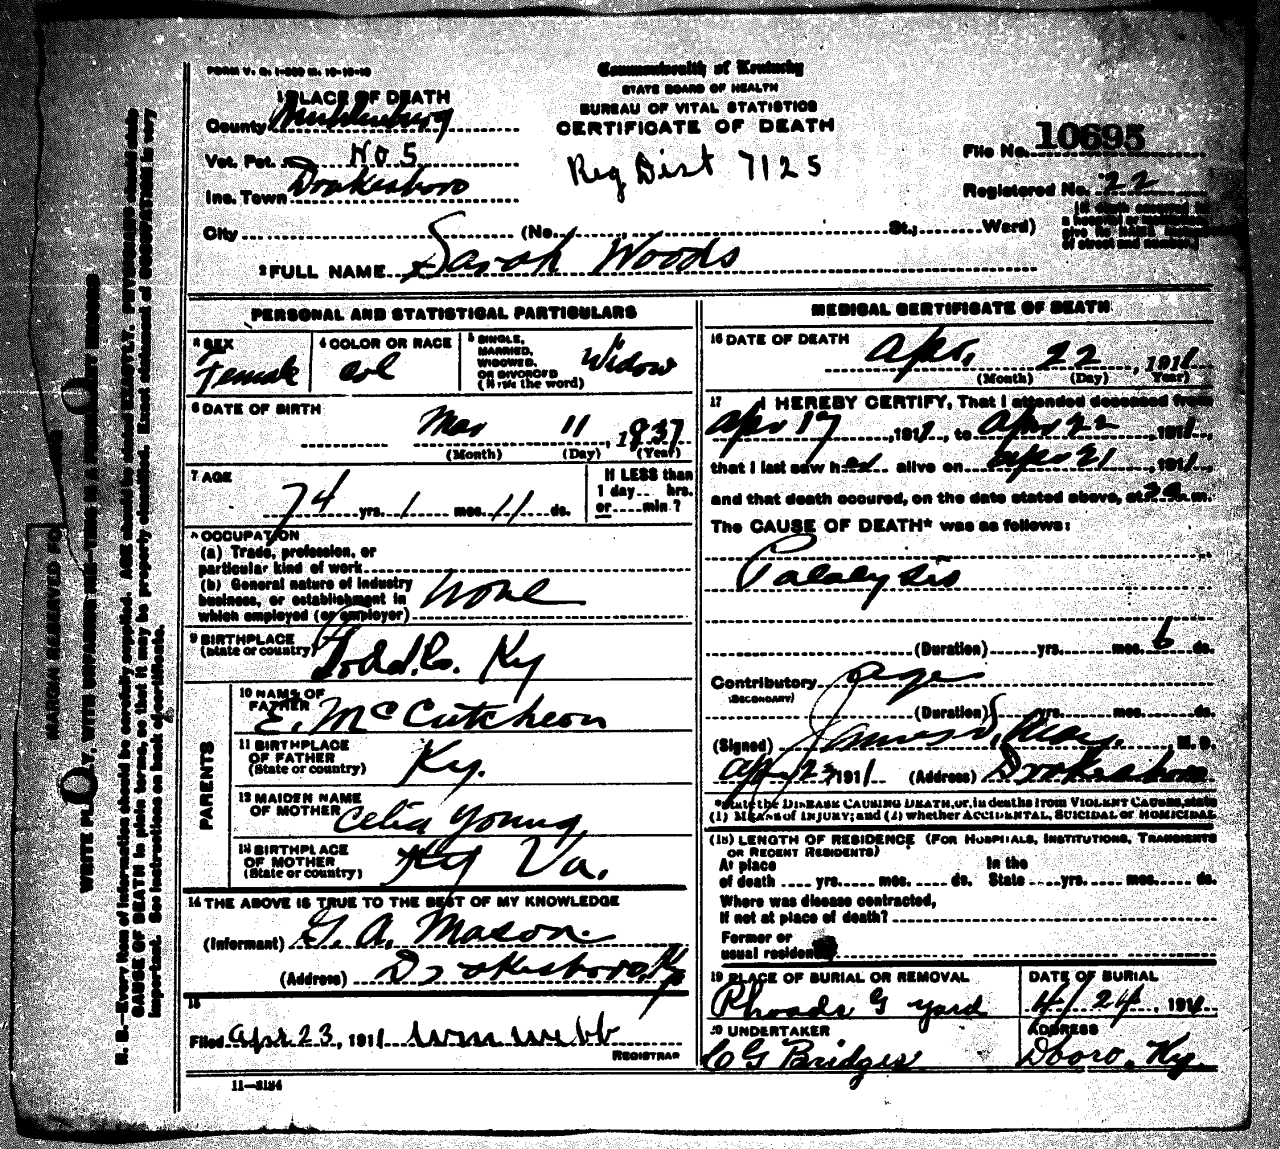 FORM V. S. 1-500 m. 10-10-10
Commonwealth of Kentucky
STATE BOARD OF HEALTH
BUREAU OF VITAL STATISTICS
CERTIFICATE OF DEATH
1 PLACE OF DEATH
County Muhlenburg
Vot. Pct. No 5
Inc. Town Drakesboro
Reg Dist 7125
File No. 10695
Registered No. 22
City (No. St.; Ward)
[If death occurred in
a hospital or institution,
give its NAME instead
of street and number.]
2 FULL NAME Sarah Woods
PERSONAL AND STATISTICAL PARTICULARS
3 SEX
Female
4 COLOR OR RACE
Col
5 SINGLE,
MARRIED,
WIDOWED,
OR DIVORCED
(Write the word)
Widow
6 DATE OF BIRTH
Mar 11, 1837
(Month) (Day) (Year)
7 AGE
74 yrs. 1 mos. 11 ds.
If LESS than
1 day.. hrs.
or....min ?
8 OCCUPATION
(a) Trade, profession, or
particular kind of work
(b) General nature of industry
business, or establishment in
which employed (or employer)
None
9 BIRTHPLACE
(State or country)
Todd. Co. Ky
PARENTS
10 NAME OF
FATHER
E. McCutcheon
11 BIRTHPLACE
OF FATHER
(State or country)
Ky.
12 MAIDEN NAME
OF MOTHER
Celia Young
13 BIRTHPLACE
OF MOTHER
(State or country)
Va.
14 THE ABOVE IS TRUE TO THE BEST OF MY KNOWLEDGE
(Informant) G. A. Mason.
(Address) Drakesboro, Ky
15
Filed Apr 23, 1911 Wm Webb
REGISTRAR
11—3184
MEDICAL CERTIFICATE OF DEATH
16 DATE OF DEATH
Apr. 22, 1911
(Month) (Day) Year)
17 I HEREBY CERTIFY, That I attended deceased from
Apr 17, 1911, to Apr 22, 1911,
that I last saw her alive on Apr 21, 1911,
and that death occured, on the date stated above, at m.
The CAUSE OF DEATH* was as follows:
Paralysis
(Duration) yrs. mos. 6 ds.
Contributory age
(SECONDARY)
(Duration) yrs. mos. ds.
(Signed) James M. D.
Apr 23 1911 (Address) Drakesboro
*State the DISEASE CAUSING DEATH, or, in deaths from VIOLENT CAUSES, state
(1) MEANS of INJURY; and (2) whether ACCIDENTAL, SUICIDAL or HOMICIDAL
(18) LENGTH OF RESIDENCE (FOR HOSPITALS, INSTITUTIONS, TRANSIENTS
OR RECENT RESIDENTS)
At place
of death .... yrs. mos. ds.
In the
State yrs. mos. ds.
Where was disease contracted,
if not at place of death?
Former or
usual residence
19 PLACE OF BURIAL OR REMOVAL
Rhoads G yard
DATE OF BURIAL
4/24, 1911
20 UNDERTAKER
C G Bridges
ADDRESS
Dboro, Ky.
MARGIN RESERVED FOR BINDING
WRITE PLAINLY, WITH UNFADING INK—THIS IS A PERMANENT RECORD
N. B.—Every item of information should be carefully supplied. AGE should be stated EXACTLY. PHYSICIANS should state
CAUSE OF DEATH in plain terms, so that it may be properly classified. Exact statement of OCCUPATION is very
important. See instructions on back of certificate.